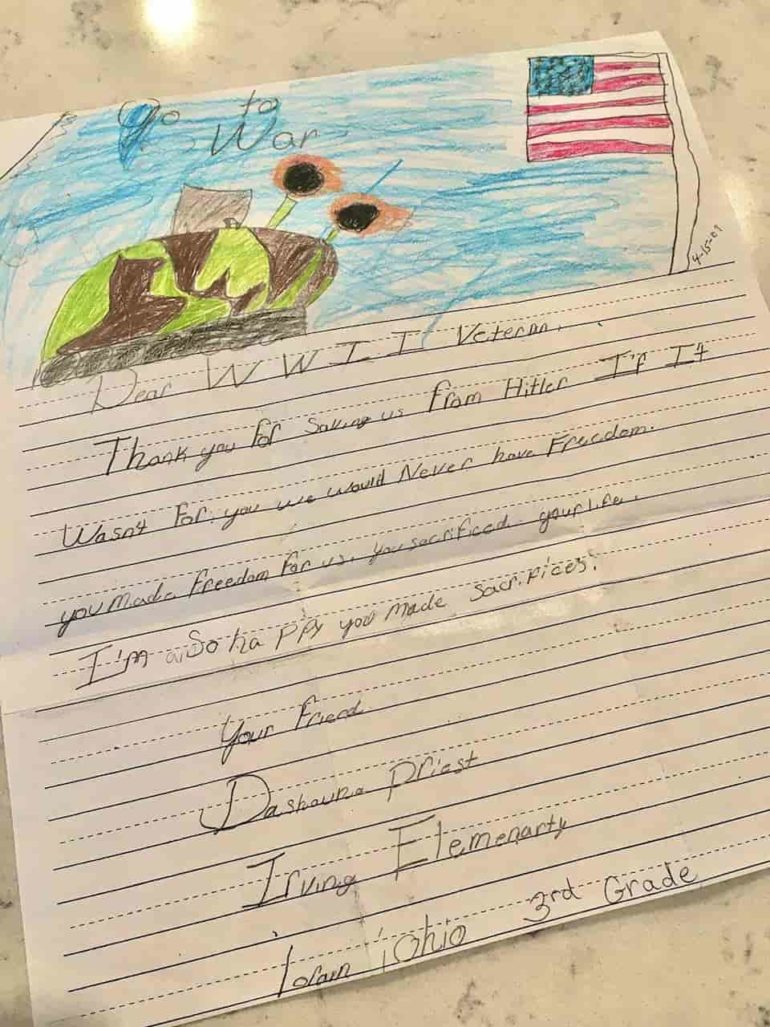 Go to
War
4-15-09
Dear WWII Veteran,
Thank you for saving us from Hitler If It
Wasnt For you we would Never have Freedom.
you made freedom for us. you sacrificed your life.
I'm so happy you made sacrifices.
Your friend
Dashauna Priest
Irving Elemenarty
lorain Ohio 3rd Grade